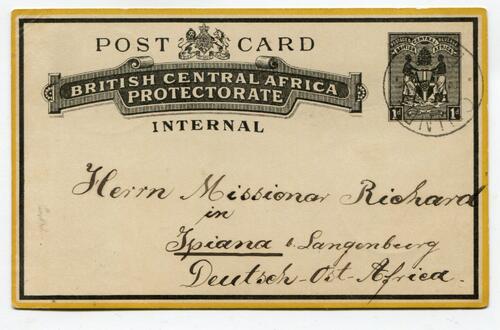 POST CARD
BRITISH CENTRAL AFRICA
PROTECTORATE
INTERNAL
1d 1d
Herrn Missionar Richard
in
Ipiana b. Langenburg
Deutsch-Ost-Africa.